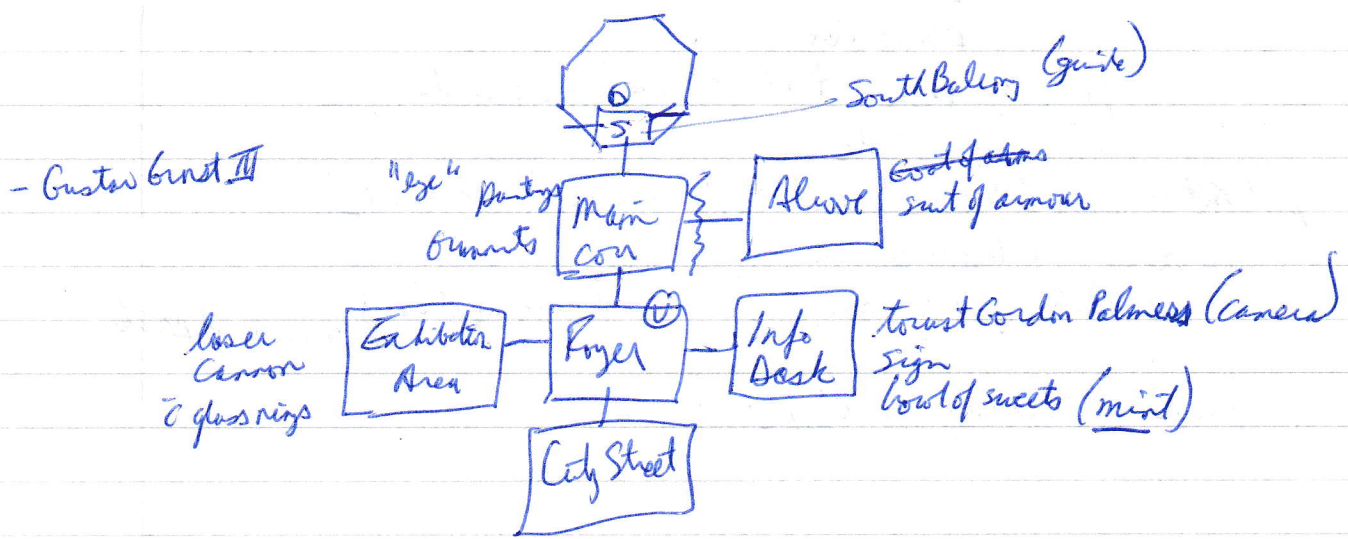 South Balcony (guide)
S
- Gustav Ernst III
"eye" paintings
Main
corr
Alcove
Coat of arms
suit of armour
ornaments
laser
cannon
c̄ glass rings
Exhibition
Area
Foyer
U
Info
Desk
tourist Gordon Palmess (camera)
sign
bowl of sweets (mint)
City Street